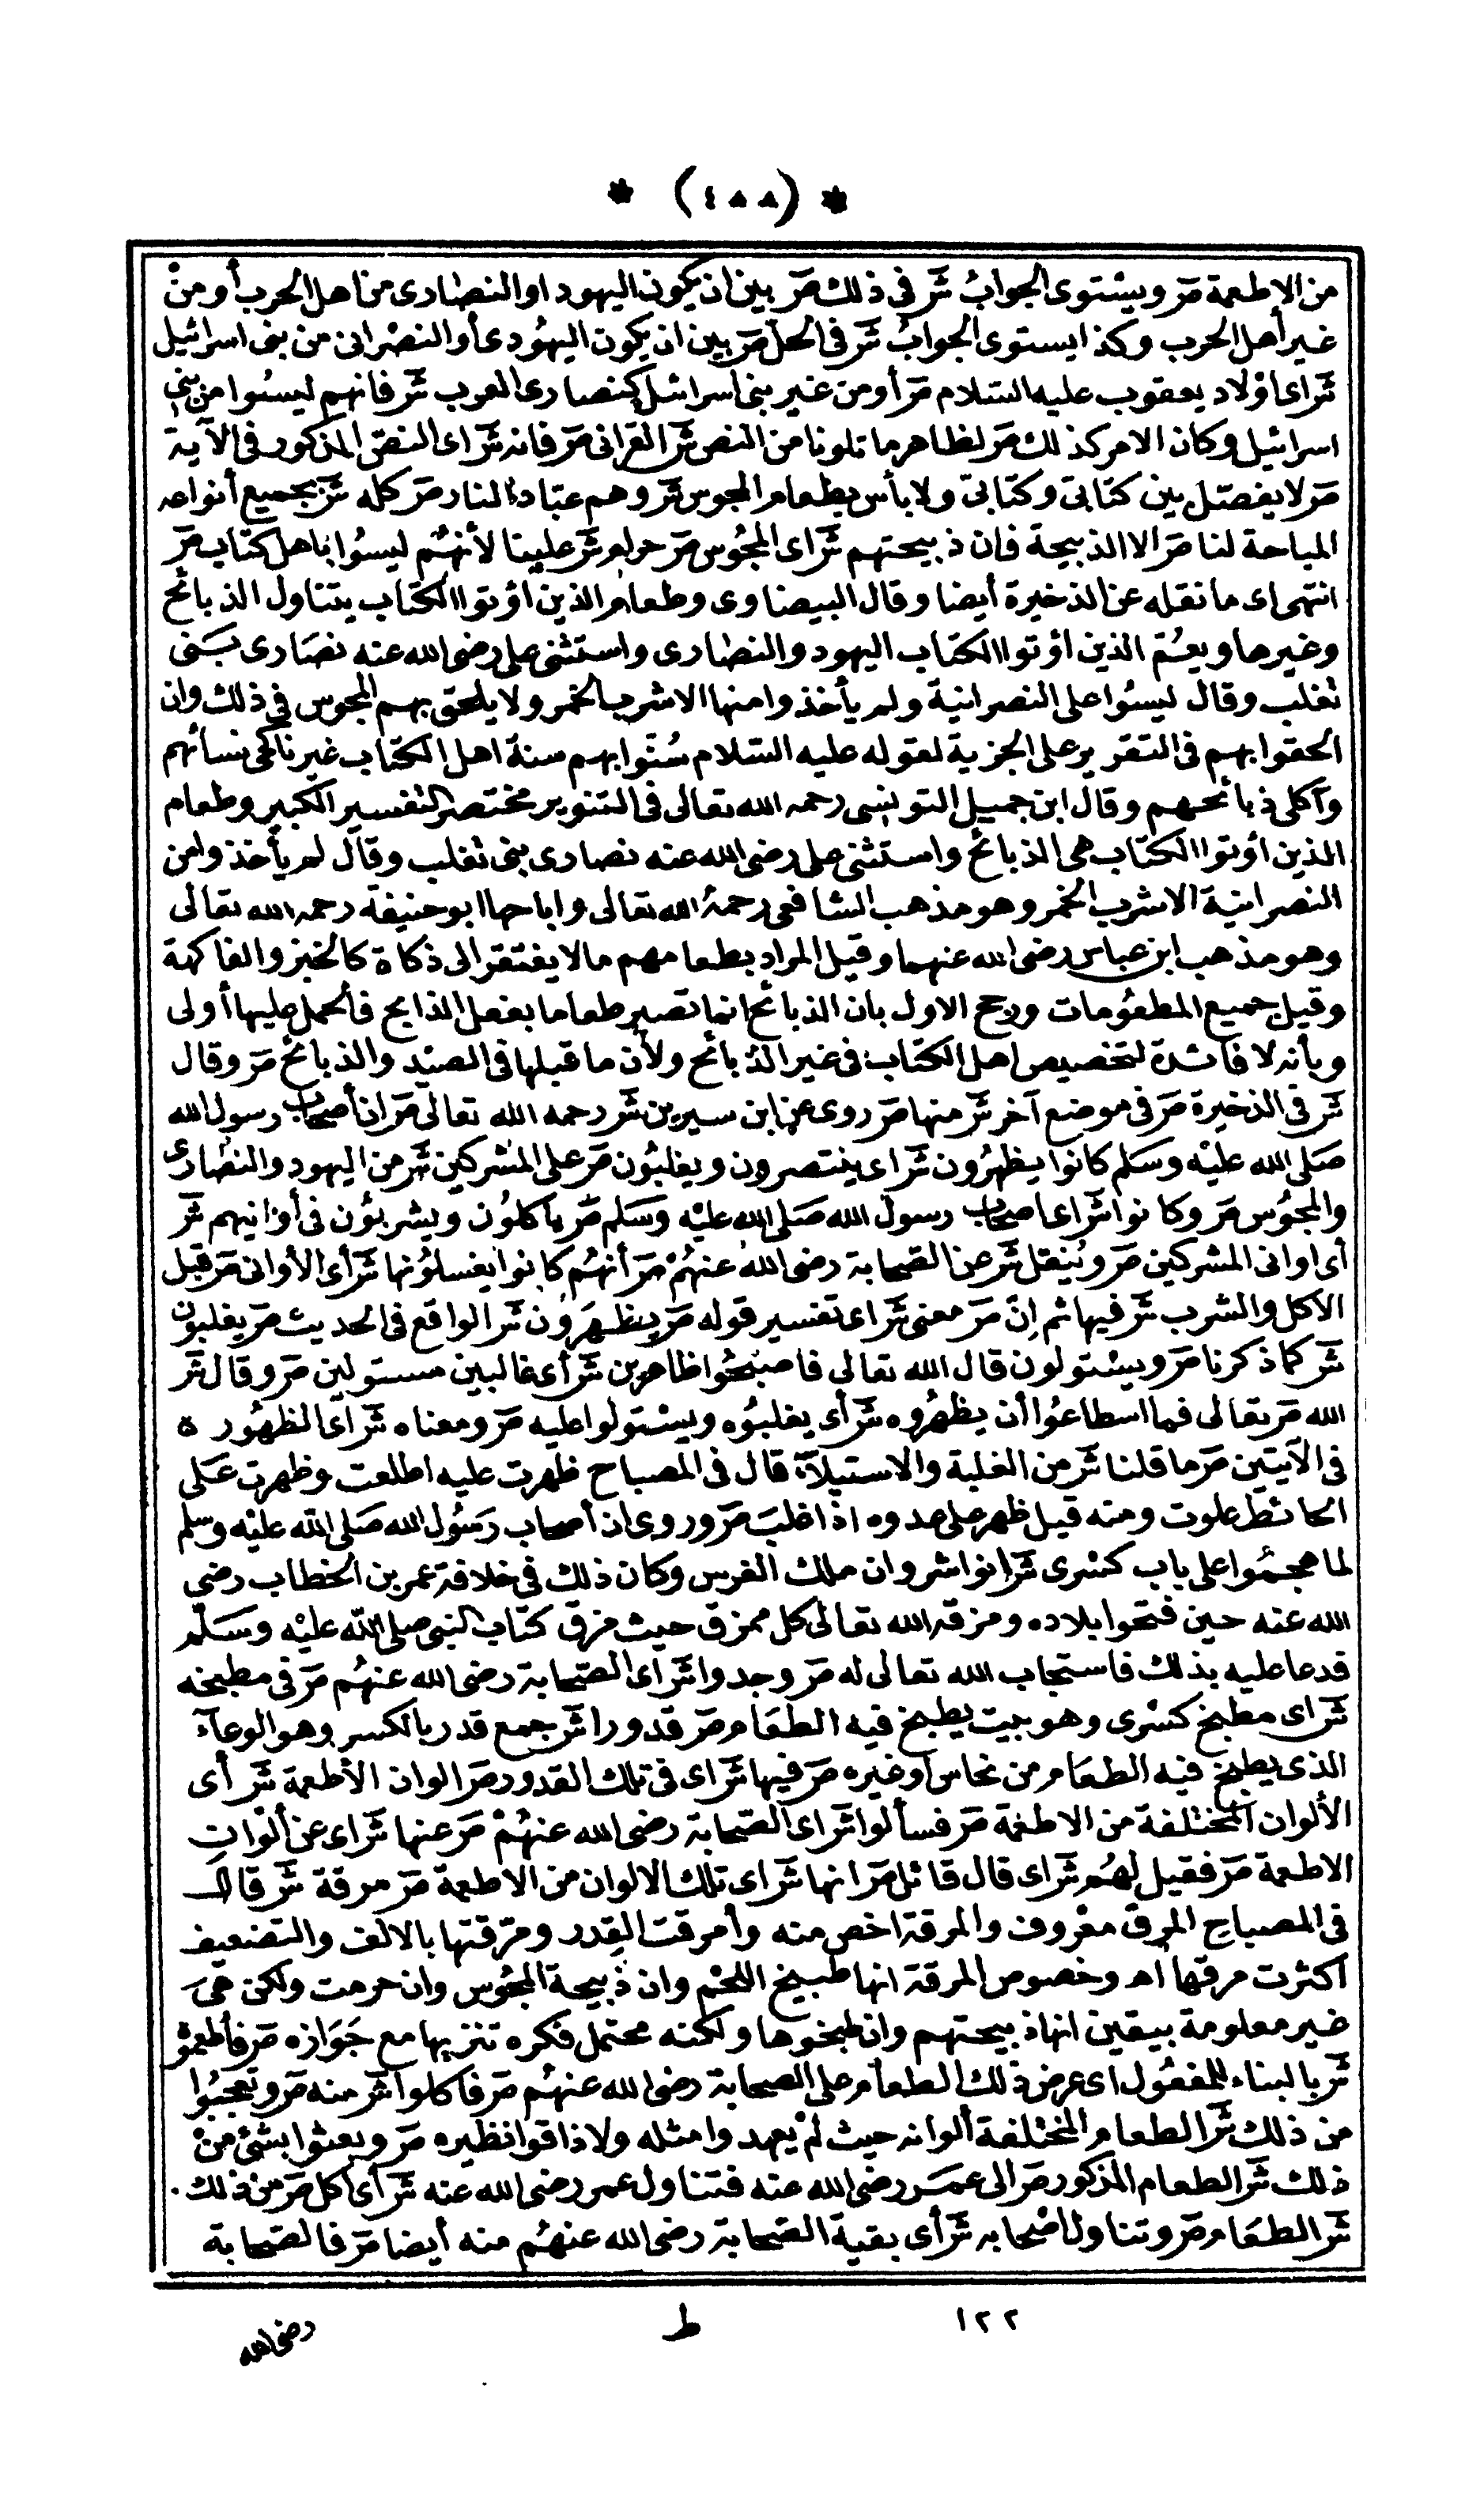 * (٤٨٨) *
من الاطعمة مَرَ ويستوى الجوابُ شَر فى ذلك مَر بين ان يكون اليهود او النصارى من اهل الحرب أو من
غير أهل الحرب وكذا يستوى الجوابُ شَر فى الحل مَر بين ان يكون اليهُودى أو النصْرانى من بنى اسرائيل
شَر اى اولاد يعقوب عليه السَّلام مَر أو من غير بنى اسرائيل كنصارى العرب شَر فانهم ليسُوا من بنى
اسرائيل وكان الامر كذلك مَر لظاهر ما تلونا من النص شَر القرانى مَر فانه شَر اى النصّ المذكور فى الآية
مَر لا يفصّل بين كتابىّ وكتابىّ ولا بأس بطعام المجوس شَر وهم عبّاد النار مَر كله شَر بجميع أنواعه
المباحة لنا مَر الا الذبيحة فان ذبيحتهم شَر اى المجُوس مَر حرام شَر علينا لأنهُم ليسُوا باهل كتاب مَر
انتهى اى ما نقله عن الذخيرة أيضا وقال البيضاوى وطعام الذين اوتوا الكتاب يتناول الذبائح
وغيرها ويعُمّ الذين اوتوا الكتاب اليهود والنصارى واستثنى على رضى الله عنه نصَارى بَنى
تغلب وقال ليسُوا على النصرانية ولم يأخذوا منها الا شرب الخمر ولا يلحق بهم المجوس فى ذلك وان
الحقوا بهم فى التقرير على الجزية لقوله عليه السّلام سُنّوا بهم سنة اهل الكتاب غير ناكحى نسائهم
وآكلى ذبائحهم وقال ابن جميل التونسى رحمه الله تعالى فى التنوير مختصر التفسير الكبير وطعام
الذين اوتوا الكتاب هى الذبائح واستثنى على رضى الله عنه نصارى بنى تغلب وقال لم يأخذوا من
النصرانية الا شرب الخمر وهو مذهب الشافعى رحمهُ الله تعالى واباحها ابو حنيفة رحمه الله تعالى
وهو مذهب ابن عباس رضى الله عنهما وقيل المراد بطعامهم ما لا يفتقر الى ذكاة كالخبز والفاكهة
وقيل جميع المطعُومات ورجح الاول بان الذبائح انما تصير طعاما بفعل الذابح فالحمل عليها أولى
وبأنه لا فائدة لتخصيص اهل الكتاب فى غير الذبائح ولأن ما قبلها فى الصيْد والذبائح مَر وقال
شَر فى الذخيرة مَر فى موضع آخر شَر منها مَر روى عن ابن سيرين شَر رحمه الله تعالى مَر ان أصحاب رسول الله
صَلى الله عليْه وسَلم كانوا يظهرُون شَر اى ينتصرون ويغلبُون مَر على المشركين شَر من اليهود والنصَارى
والمجُوس مَر وكانوا شَر اى اصحاب رسول الله صَلى الله عليْه وسَلم مَر يأكلُون ويشربُون فى أوانيهم شَر
أى اوانى المشركين مَر ويُنقل شَر عن الصحابة رضى الله عنهُمْ مَر أنهُم كانوا يغسلُونها شَر أى الأوانى مَر قبل
الأكل والشرب شَر فيها ثم انّ مَر معنى شَر اى تفسير قوله مَر يظهَرُون شَر الواقع فى الحديث مَر يغلبون
شَر كما ذكرنا مَر ويسْتولون قال الله تعالى فاصبَحُوا ظاهرين شَر أى غالبين مستولين مَر وقال شَر
الله مَر تعالى فما اسطاعُوا أن يظهرُوه شَر أى يغلبُوه ويسْتولوا عليه مَر ومعناه شَر أى الظهُور ه
فى الآيتين مَر ما قلنا شَر من الغلبة والاستيلآء قال فى المصباح ظهرت عليه اطلعت وظهرت عَلى
الحائط علوت ومنه قيل ظهر على عدوه اذا غلبَ مَر وروى ان أصحاب رَسُول الله صَلى الله عليْه وسلم
لما هجمُوا على باب كسْرى شَر انو اشروان ملك الفرس وكان ذلك فى خلافة عمر بن الخطاب رضى
الله عنه حين فتحوا بلاده ومزقه الله تعالى كل ممزق حيث مزق كتاب النبى صلى الله عليْه وسَلّم
فدعا عليه بذلك فاستجاب الله تعالى له مَر وجدوا شَر اى الصّحابة رضى الله عنهُم مَر فى مطبخه
شَر اى مطبخ كسْرى وهو بيت يطبخ فيه الطعَام مَر قدورا شَر جمع قدر بالكسر وهو الوعآء
الذى يطبخ فيه الطعَام من نحاس أو غيره مَر فيها شَر اى فى تلك القدور مَر الوان الأطعمة شَر أى
الألوان المختلفة من الاطعمة مَر فسألوا شَر اى الصّحابة رضى الله عنهُمْ مَر عنها شَر اى عن ألوانِ
الاطعمة مَر فقيل لهُم شَر اى قال قائل مَر انها شَر اى تلك الالوان من الاطعمة مَر مرقة شَر قال
فى المصباح المرق معْروف والمرقة اخص منه وأمرقت القِدر ومَرّقتها بالالف والتضعيف
اكثرت مرقها اهـ وخصوص المرقة انها طبيخ اللحْم وان ذبيحة المجُوس وان حرمت ولكن هىَ
غير معلومة بيقين انها ذبيحتهم وان طبخوها ولكنه محتمل فكره تنزيها مع جَوَازه مَر فأطعمُوا
شَر بالبناء للمفعُول اى عرض ذلك الطعام على الصحابة رضى الله عنهُم مَر فاكلوا شَر منه مَر وتعجبُوا
من ذلك شَر الطعام المختلفة ألوانه حيث لمْ يعهدوا مثله ولا ذاقوا نظيره مَر وبعثوا بشئ منْ
ذلك شَر الطعام المذكور مَر الى عمَر رضى الله عنه فتناول عمر رضى الله عنه شَر أى أكل مَر من ذلك
شَر الطعَام مَر وتناول اصْحابه شَر أى بقية الصّحابة رضى الله عنهُم منه أيضا مَر فالصّحابة
١٢٢ ط رضى الله